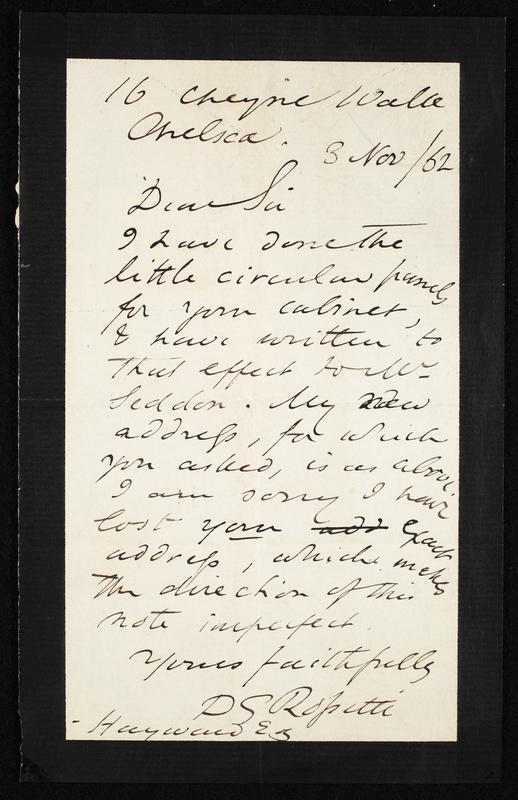 16 Cheyne Walk
Chelsea.
3 Nov/62
Dear Sir
I have done the
little circular panels
for your cabinet,
& have written to
that effect to Mr
Seddon. My new
address, for which
you asked, is as above.
I am sorry I have
lost your add exact
address, which makes
the direction of this
note imperfect.
Yours faithfully
D G Rossetti
- Hayward Esq